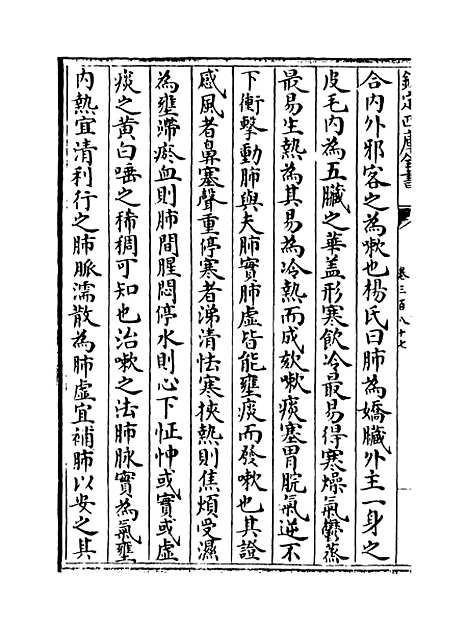 欽定四庫全書
卷三百八十七
合内外邪客之為嗽也楊氏曰肺為嬌臟外主一身之
皮毛内為五臟之華盖形寒飲冷最易得寒燥氣欝蒸
最易生熱為其易為冷熱而成欬嗽痰塞胃脘氣逆不
下衝擊動肺與夫肺實肺虚皆能壅痰而發嗽也其證
感風者鼻塞聲重停寒者涕清怯寒挾熱則焦煩受濕
為壅滯瘀血則肺間腥悶停水則心下怔忡或實或虚
痰之黄白唾之稀稠可知也治嗽之法肺脉實為氣壅
内熱宜清利行之肺脈濡散為肺虚宜補肺以安之其